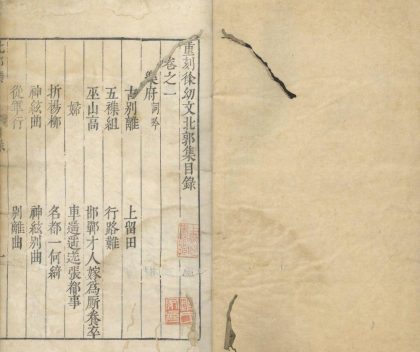 重刻徐幼文北郭集目錄
卷之一
樂府 詞吟
古別離 上留田
五襍組 行路難
巫山高 邯鄲才人嫁為廝養卒
婦 車遙遙送張都事
折楊柳 名都一何綺
神絃曲 神絃別曲
從軍行 別離曲